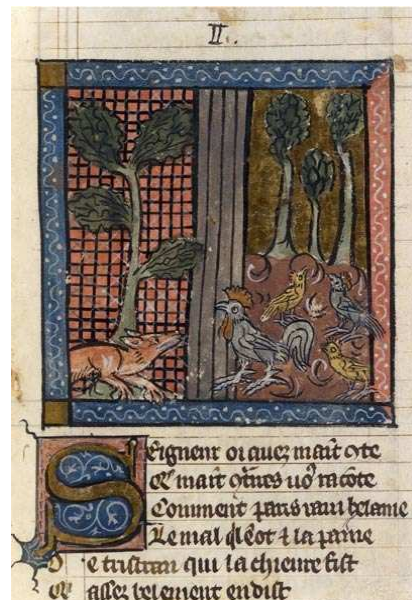 II.
Seignent oi auez maīt 9te
Q̄ maīt 9t̄res uo9 racōte
Comment paris raui helaine
Le mal q̄l eot ⁊ la paine
De tristran qui la chieure fist
Q̄ assez belement en dist